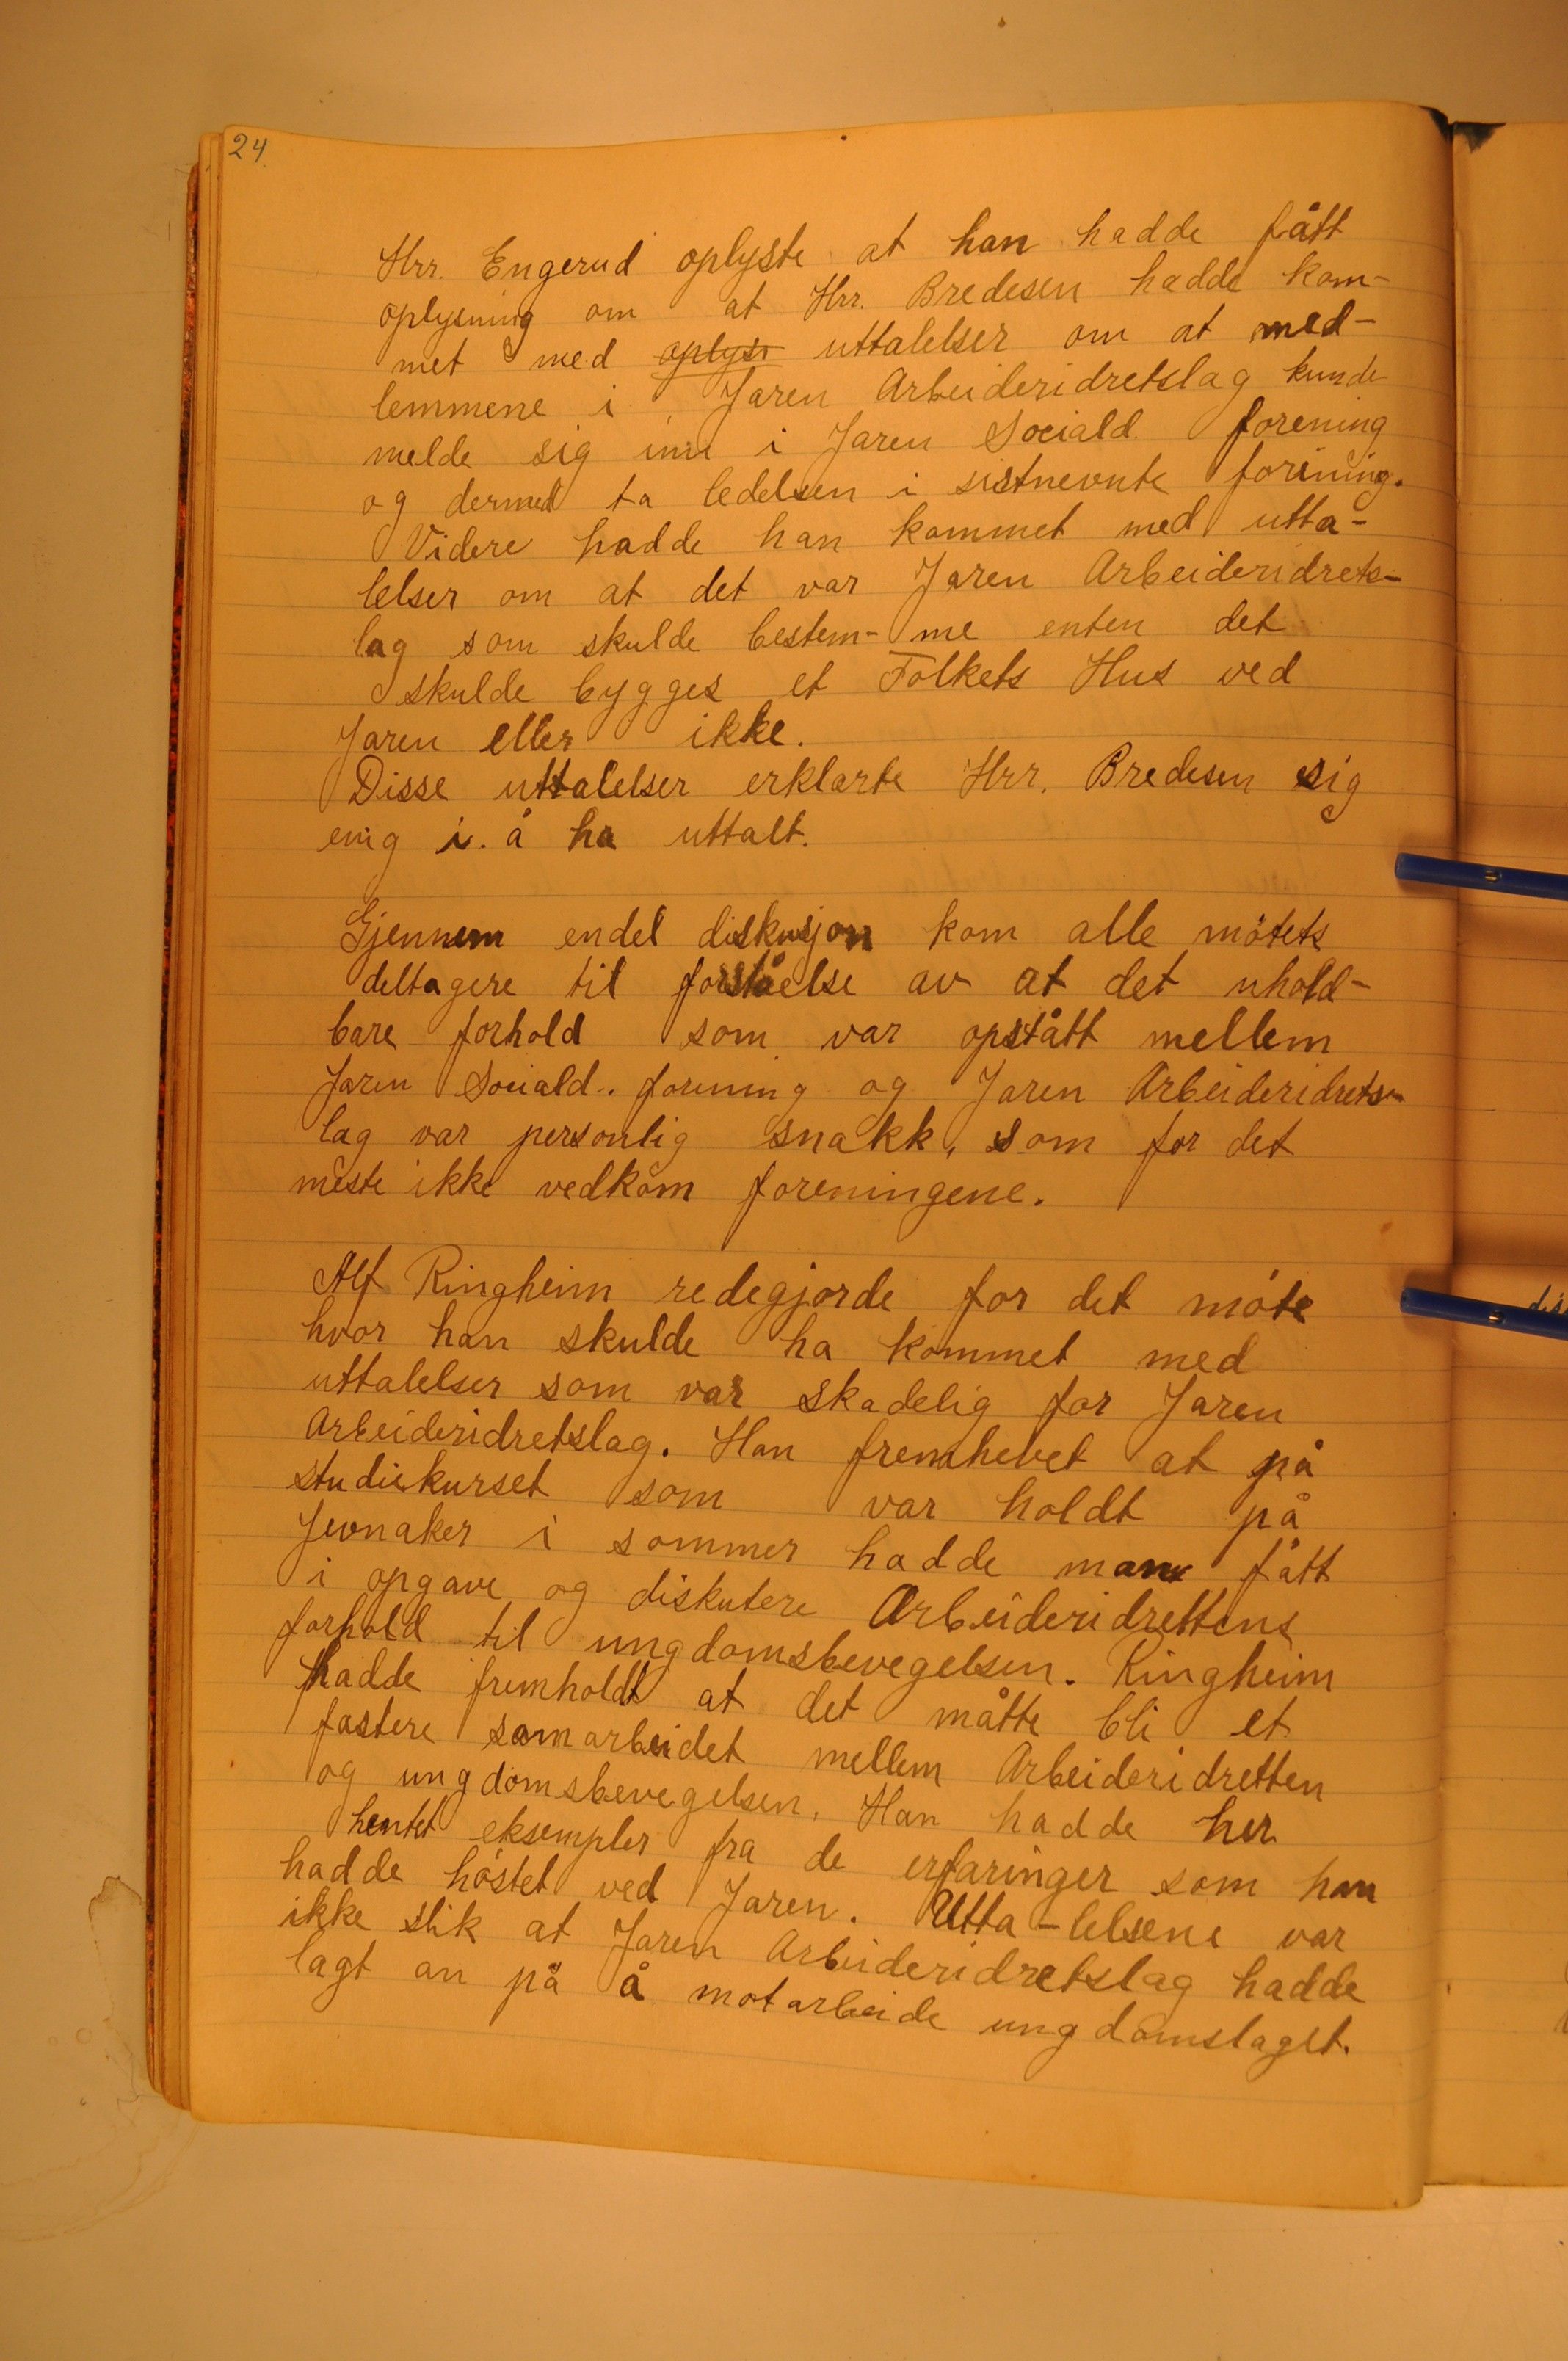 24.
Hrr. Engerud oplyste at han hadde fått
oplysning om at Hrr. Bredesen hadde kom-
met med oplys uttalelser om at med-
lemmene i Jaren Arbeideridretslag kunde
melde sig inn i Jaren Sociald. forening
og dermed ta ledelsen i sistnevnte forening.
Videre hadde han kommet med utta-
lelser om at det var Jaren Arbeideridrets-
lag som skulde bestem-me enten det
skulde bygges et Folkets Hus ved
Jaren eller ikke.
Disse uttalelser erklarte Hrr. Bredesen sig
enig i. å ha uttalt.
Gjennem endel diskusjon kom alle mötets
deltagere til forståelse av at det uhold-
bare forhold som var opstått mellem
Jaren Sociald.. forening og Jaren Arbeideridrets-
lag var personlig snakk, som for det
meste ikke vedkom foreningene.
Alf Ringheim redegjorde for det möte
hvor han skulde ha kommet med
uttalelser som var skadelig for Jaren
Arbeideridretslag. Han fremhevet at på
studiekurset som var holdt på
Jevnaker i sommer hadde man fått
i opgave og diskutere Arbeideridrettens
forhold til ungdomsbevegelsen. Ringheim
hadde fremholdt at det måtte bli et
fastere samarbeidet mellem Arbeideridretten
og ungdomsbevegelsen. Han hadde her
hentet eksempler fra de erfaringer som han
hadde höstet ved Jaren. Utta-lelsene var
ikke slik at Jaren Arbeideridretslag hadde
lagt an på å motarbeide ungdomslaget.